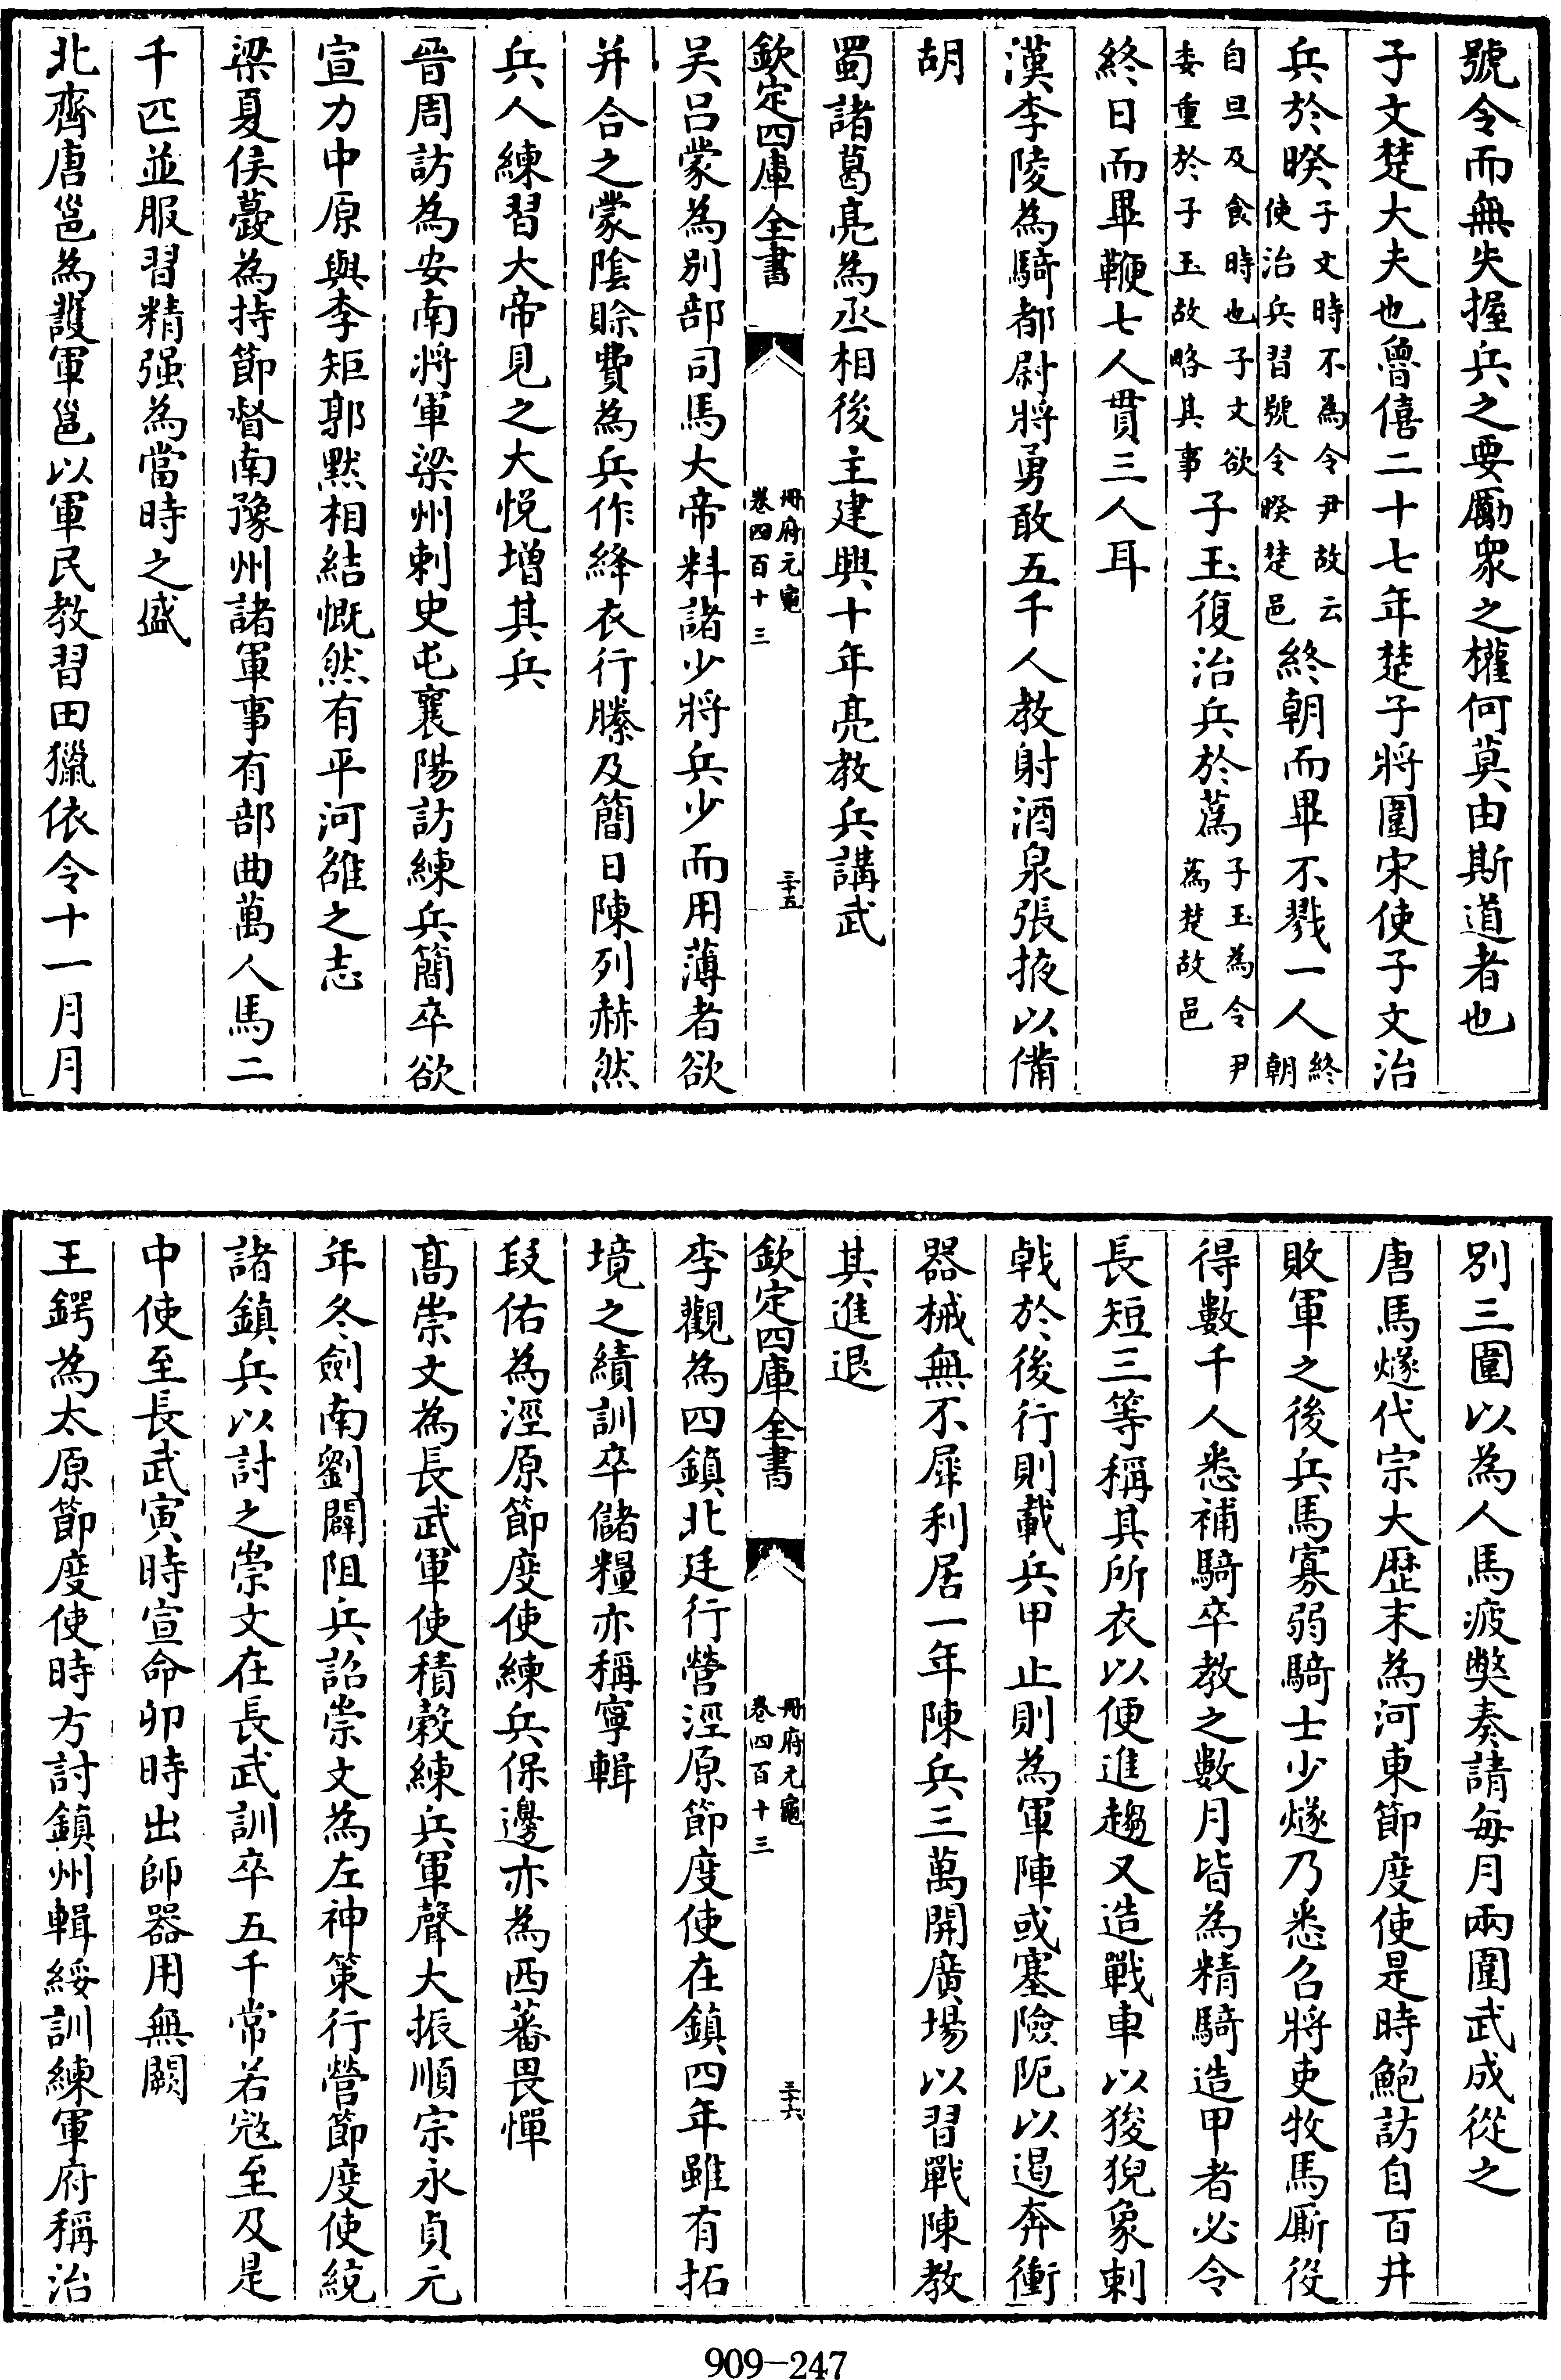 號令而無失握兵之要勵衆之權何莫由斯道者也
子文楚大夫也魯僖二十七年楚子將圍宋使子文治
兵於暌子文時不為令尹故云使治兵習號令暌楚邑終朝而畢不戮一人終朝
自旦及食時也子文欲委重於子玉故略其事子玉復治兵於蒍子玉為令尹蒍楚故邑
終日而畢鞭七人貫三人耳
漢李陵為騎都尉將勇敢五千人教射酒泉張掖以備
胡
蜀諸葛亮為丞相後主建興十年亮教兵講武
欽定四庫全書 冊府元龜卷四百十三 三十五
吴吕蒙為別部司馬大帝料諸少將兵少而用薄者欲
并合之蒙隂賒費為兵作絳衣行縢及簡日陳列赫然
兵人練習大帝見之大悦增其兵
晉周訪為安南將軍梁州刺史屯襄陽訪練兵簡卒欲
宣力中原與李矩郭默相結慨然有平河雒之志
梁夏侯夔為持節督南豫州諸軍事有部曲萬人馬二
千匹並服習精强為當時之盛
北齊唐邕為護軍邕以軍民教習田獵依令十一月月
別三圍以為人馬疲獘奏請每月兩圍武成從之
唐馬燧代宗大歴末為河東節度使是時鮑訪自百井
敗軍之後兵馬寡弱騎士少燧乃悉召將吏牧馬厮役
得數千人悉補騎卒教之數月皆為精騎造甲者必令
長短三等稱其所衣以便進趨又造戰車以狻猊象刺
戟於後行則載兵甲止則為軍陣或塞險阨以遏奔衝
器械無不犀利居一年陳兵三萬開廣場以習戰陳教
其進退
欽定四庫全書 冊府元龜卷四百十三 三十六
李觀為四鎮北廷行營涇原節度使在鎮四年雖有拓
境之績訓卒儲糧亦稱寧輯
段佑為涇原節度使練兵保邊亦為西蕃畏憚
髙崇文為長武軍使積榖練兵軍聲大振順宗永貞元
年冬劍南劉闢阻兵詔崇文為左神策行營節度使統
諸鎮兵以討之崇文在長武訓卒五千常若冦至及是
中使至長武寅時宣命卯時出師器用無闕
王鍔為太原節度使時方討鎮州輯綏訓練軍府稱治
909-247